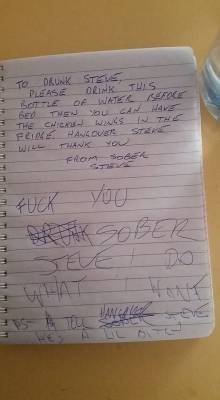 TO DRUNK STEVE,
PLEASE DRINK THIS
BOTTLE OF WATER BEFORE
BED THEN YOU CAN HAVE
THE CHICKEN WINGS IN THE
FRIDGE. HANGOVER STEVE
WILL THANK YOU
FROM SOBER
STEVE
FUCK YOU
DRUNK SOBER
STEVE! I DO
WHAT I WANT
TELL HANGOVER
SOBER STEVE
HE'S A LIL BITCH!